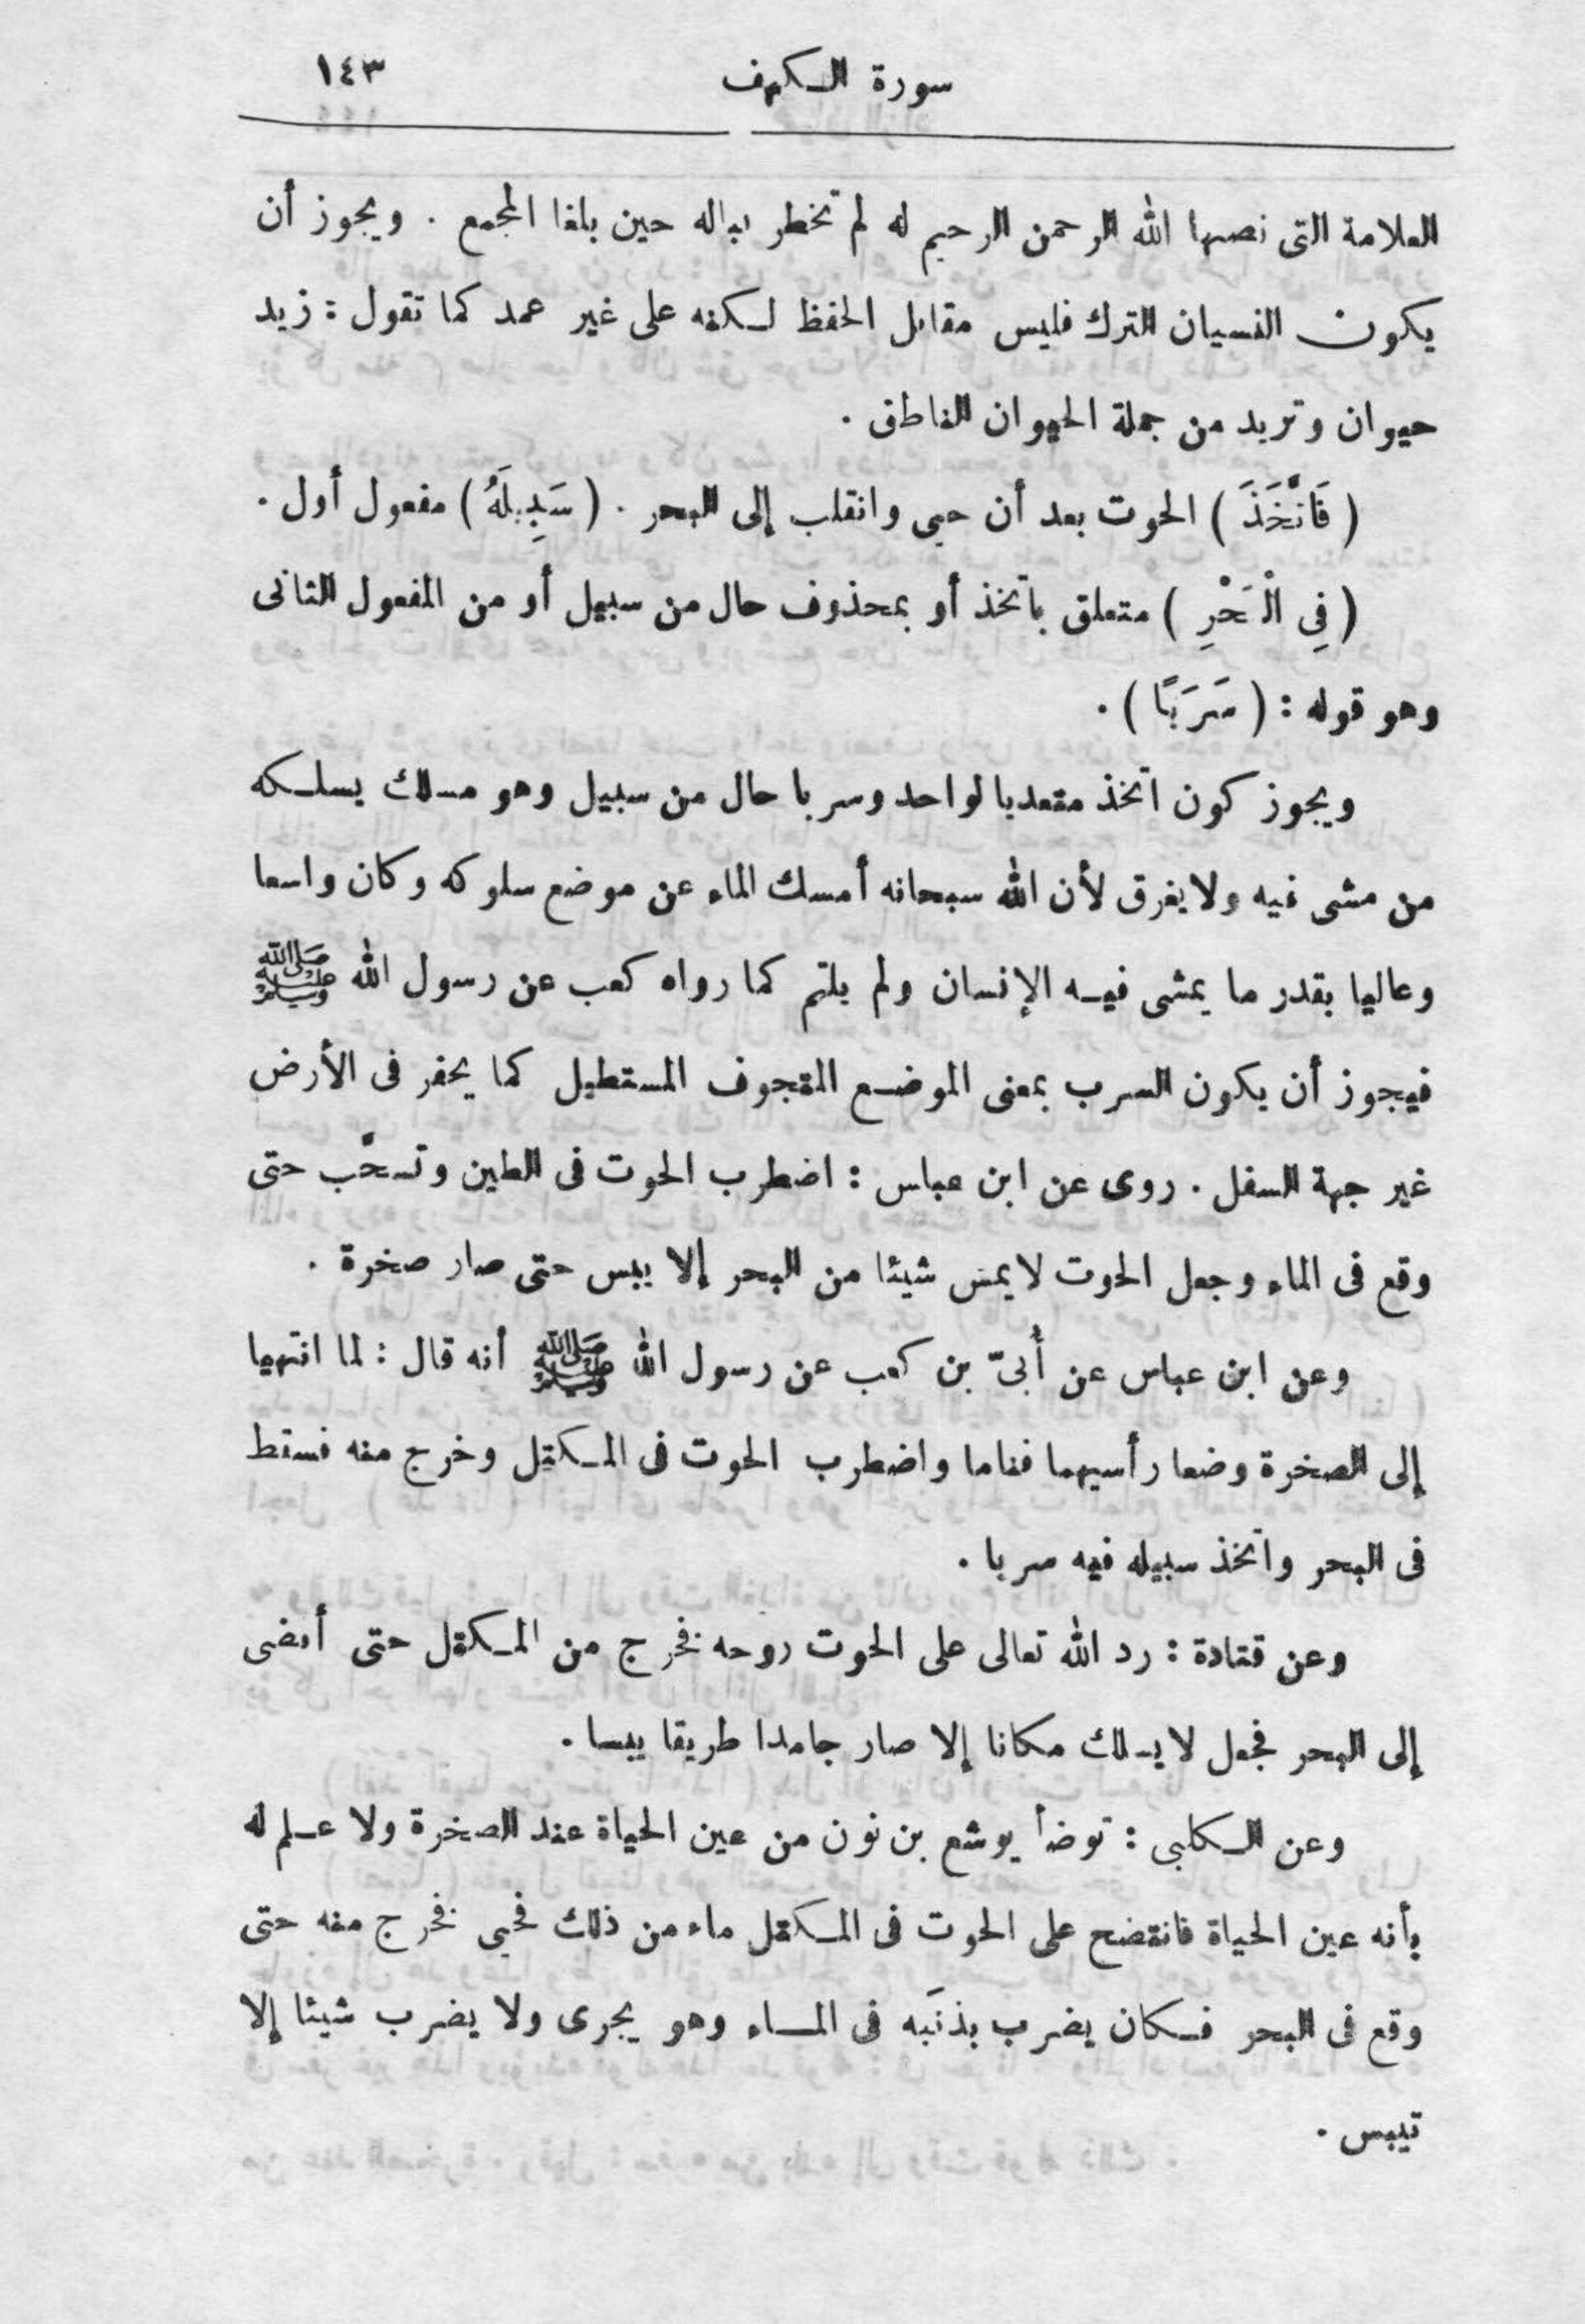 سورة الكهف ١٤٣
العلامة التى نصبها الله الرحمن الرحيم له لم تخطر بباله حين بلغا المجمع . ويجوز أن
يكون النسيان الترك فليس مقابل الحفظ لكنه على غير عمد كما تقول : زيد
حيوان وتريد من جملة الحيوان الناطق .
( فَاتَّخَذَ ) الحوت بعد أن حيى وانقلب إلى البحر . ( سَبِيلَهُ ) مفعول أول .
( فِى الْبَحْرِ ) متعلق باتخذ أو بمحذوف حال من سبيل أو من المفعول الثانى
وهو قوله : ( سَرَبًا ) .
ويجوز كون اتخذ متعديا لواحد وسربا حال من سبيل وهو مسلك يسلكه
من مشى فيه ولا يغرق لأن الله سبحانه أمسك الماء عن موضع سلوكه وكان واسعا
وعاليا بقدر ما يمشى فيه الإنسان ولم يلتم كما رواه كعب عن رسول الله ﷺ
فيجوز أن يكون السرب بمعنى الموضع المتجوف المستطيل كما يحفر فى الأرض
غير جهة السفل . روى عن ابن عباس : اضطرب الحوت فى الطين وتسحَّب حتى
وقع فى الماء وجعل الحوت لا يمس شيئا من البحر إلا يبس حتى صار صخرة .
وعن ابن عباس عن أُبىّ بن كعب عن رسول الله ﷺ أنه قال : لما انتهيا
إلى الصخرة وضعا رأسيهما فناما واضطرب الحوت فى المكتل وخرج منه فسقط
فى البحر واتخذ سبيله فيه سربا .
وعن قتادة : رد الله تعالى على الحوت روحه فخرج من المكتل حتى أفضى
إلى البحر فجعل لا يسلك مكانا إلا صار جامدا طريقا يبسا .
وعن الكلبى : توضأ يوشع بن نون من عين الحياة عند الصخرة ولا علم له
بأنه عين الحياة فانتضح على الحوت فى المكتل ماء من ذلك فحيى فخرج منه حتى
وقع فى البحر فكان يضرب بذنَبه فى الماء وهو يجرى ولا يضرب شيئا إلا
تيبس .